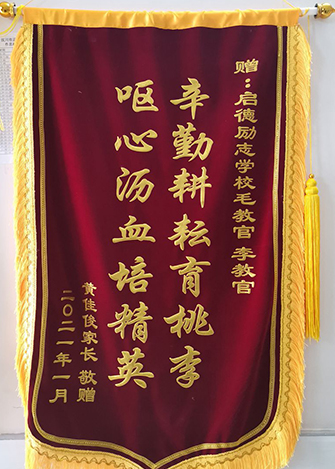 赠：启德励志学校毛教官 李教官
辛勤耕耘育桃李
呕心沥血培精英
黄佳俊家长 敬赠
二〇二一年一月